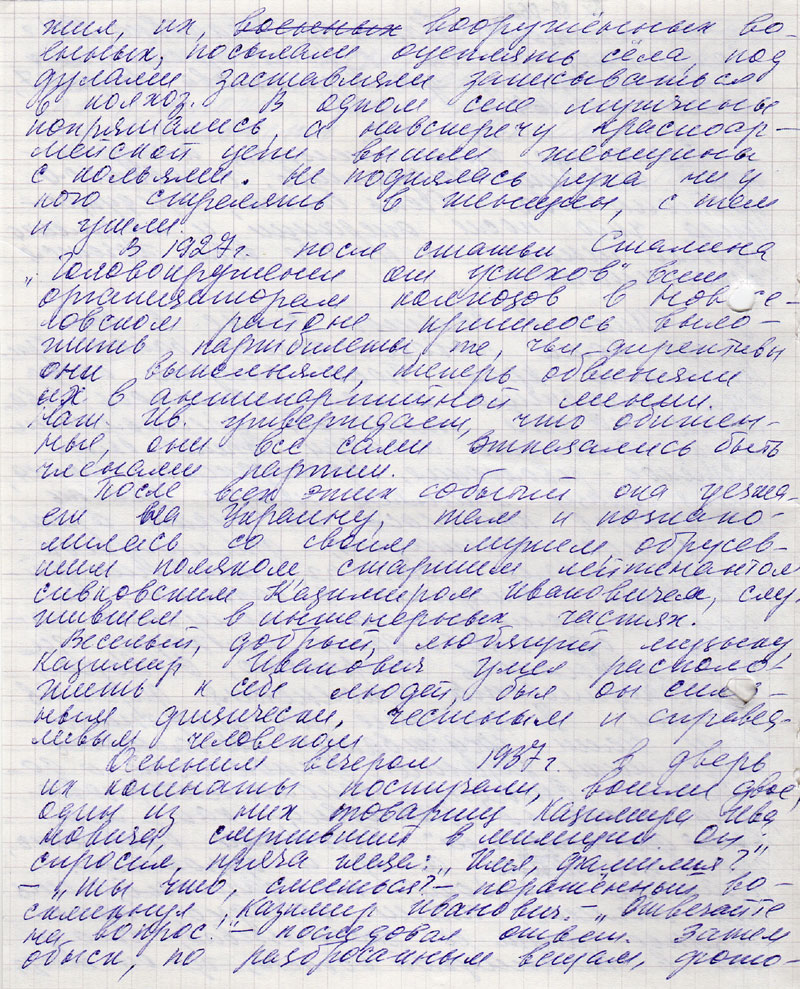 жил, их, военных вооружённых во-
енных, посылали оцеплять сёла, под
дулами заставляли записываться
в колхоз. В одном селе мужчины
попрятались, а навстречу красноар-
мейской цепи вышли женщины
с кольями. Не поднялась рука ни у
кого стрелять в женщин, с тем
и ушли.
В 1927г. после статьи Сталина
„Головокружения от успехов" всем
организаторам колхозов в Новосе-
ловском районе пришлось выло-
жить партбилеты, те, чьи директивы
они выполняли, теперь обвиняли
их в антипартийной линии.
Нат. Ив. утверждает, что обижен-
ные, они все сами отказались быть
членами партии.
После всех этих событий она уезжа-
ет на Украину, там и познако-
милась со своим мужем, обрусев-
шим поляком, старшим лейтенантом
Сивковским Казимиром Ивановичем, слу-
жившем в инженерных частях.
Веселый, добрый, любящий музыку,
Казимир Иванович умел располо-
жить к себе людей, был он силь-
ным физически, честным и справед-
ливым человеком.
Осенним вечером 1937г. в дверь
их комнаты постучали, вошли двое,
один из них товарищ Казимира Ива
новича, служивший в милиции. Он
спросил, пряча глаза: „Имя, фамилия?"
– „Ты что, смеёшься? – поражённый во-
скликнул Казимир Иванович. – „Отвечайте
на вопрос!" – последовал ответ. Затем
обыск, по разбросанным вещам, фото-